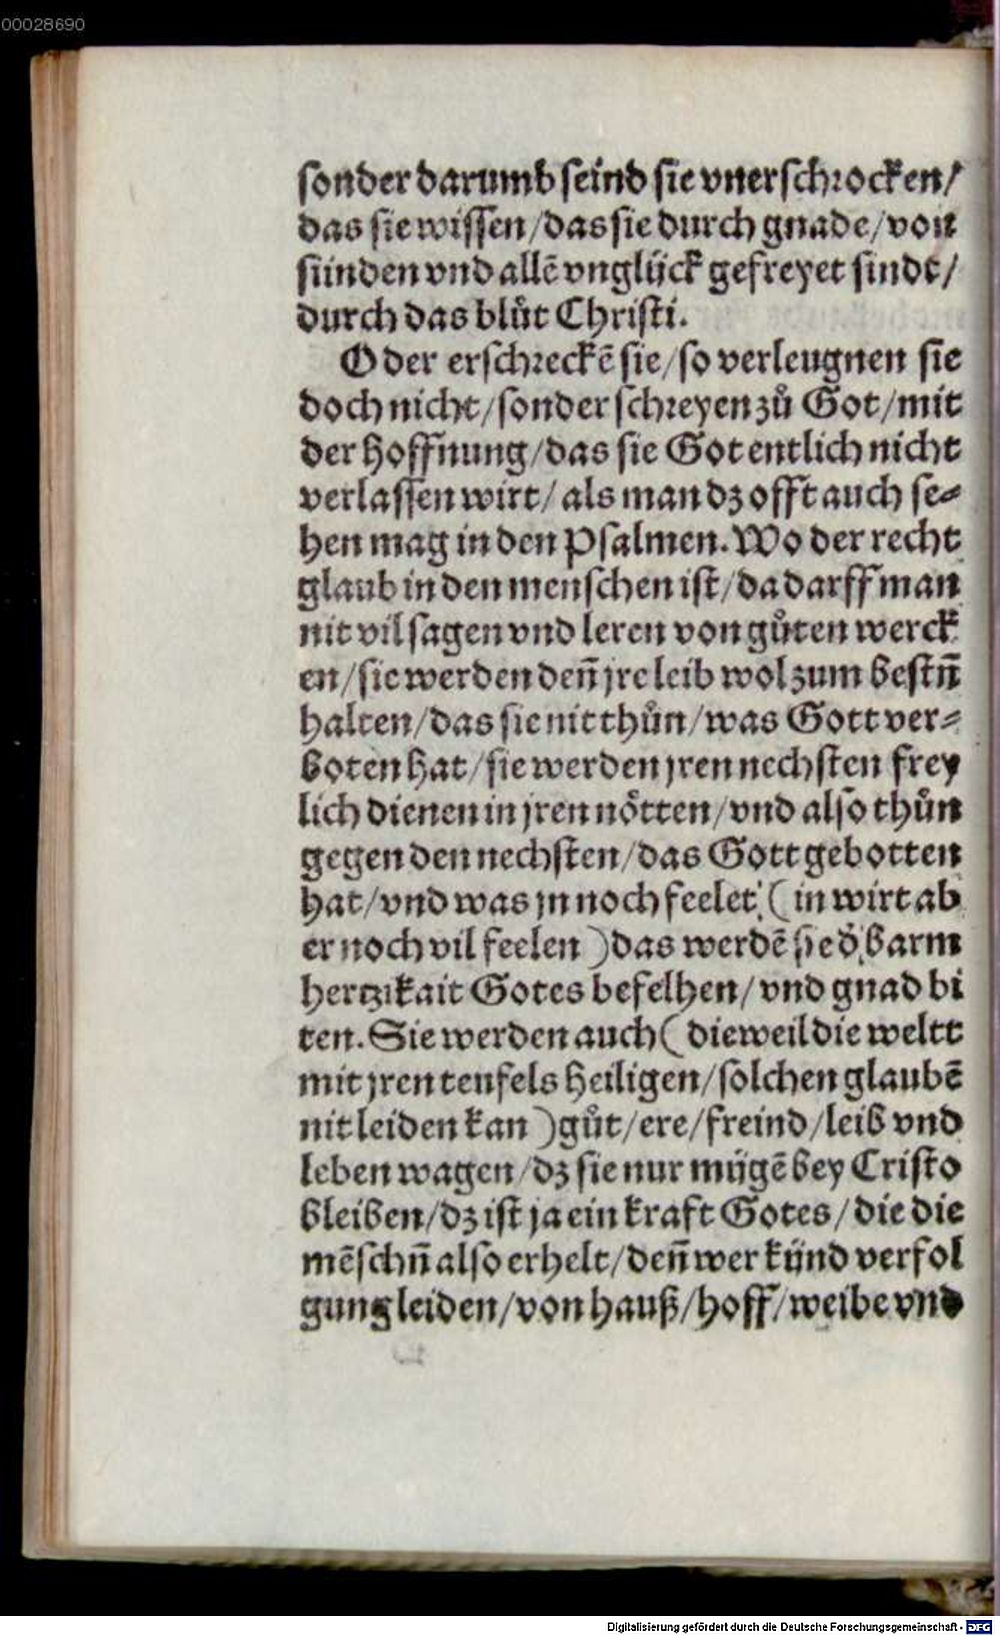 00028690
sonder darumb seind sie vnerschrocken/
das sie wissen/das sie durch gnade/von
sünden vnd allē vnglück gefreyet sindt/
durch das blůt Christi.
Oder erschreckē sie/so verleugnen sie
doch nicht/sonder schreyen zů Got/mit
der hoffnung/das sie Got entlich nicht
verlassen wirt/als man dz offt auch se-
hen mag in den Psalmen. Wo der recht
glaub in den menschen ist/da darff man
nit vil sagen vnd leren von gůten werck
en/sie werden deñ jre leib wol zum bestñ
halten/das sie nit thůn/was Gott ver-
boten hat/sie werden jren nechsten frey
lich dienen in jren nötten/vnd also thůn
gegen den nechsten/das Gott gebotten
hat/vnd was jn noch feelet (in wirt ab
er noch vil feelen) das werdē sie d̄ barm
hertzikait Gotes befelhen/vnd gnad bi
ten. Sie werden auch (dieweil die weltt
mit jren teufels heiligen/solchen glaubē
nit leiden kan) gůt/ere/freind/leib vnd
leben wagen/dz sie nur mügē bey Cristo
bleiben/dz ist ja ein kraft Gotes/die die
mēschñ also erhelt/deñ wer künd verfol
gung leiden/von hauß/hoff/weibe vnd
Digitalisierung gefördert durch die Deutsche Forschungsgemeinschaft - DFG